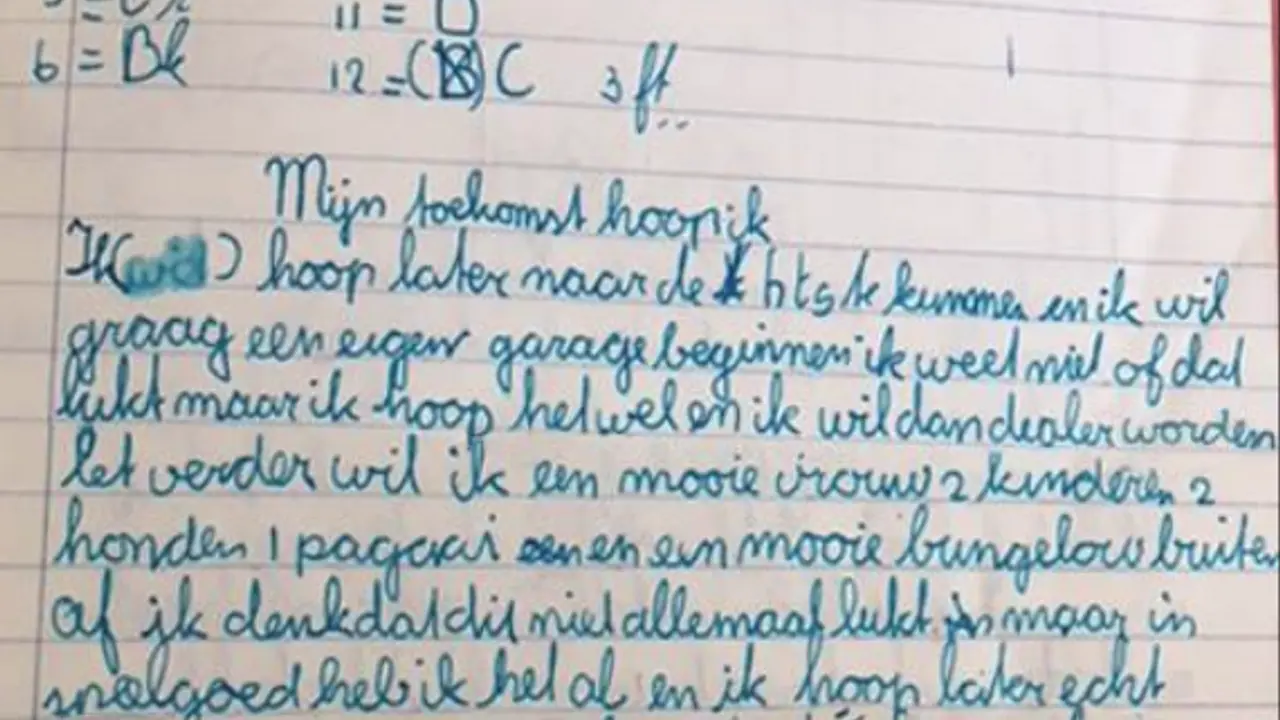 6 = Bk 11 = D
12 = (B) C 3 ft
Mijn toekomst hoop ik
Ik (wil) hoop later naar de hts te kunnen en ik wil
graag een eigen garage beginnen ik weet niet of dat
lukt maar ik hoop het wel en ik wil dan dealer worden
let verder wil ik een mooie vrouw 2 kinderen 2
honden 1 pagaai en een mooie bungelow buiten
af ik denk dat dit niet allemaal lukt maar in
spelgoed heb ik het al en ik hoop later echt